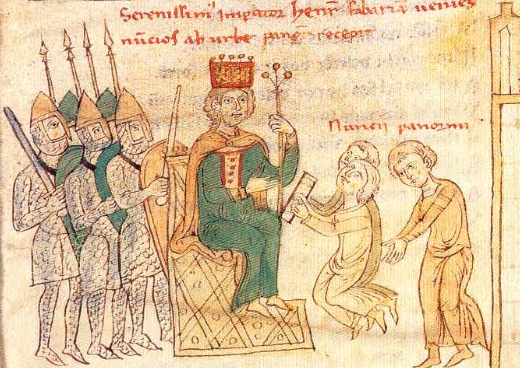 Serenissim' Impator henr' fabariā veniēs
nūcios ab urbe panor recepit
Nuncii panormi